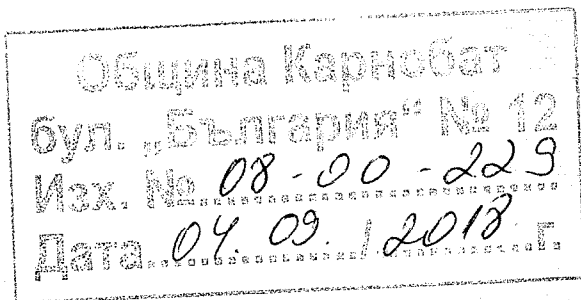 Община Карнобат
бул. „България“ № 12
Изх. № 08-00-229
Дата 04. 09. / 2018 г.